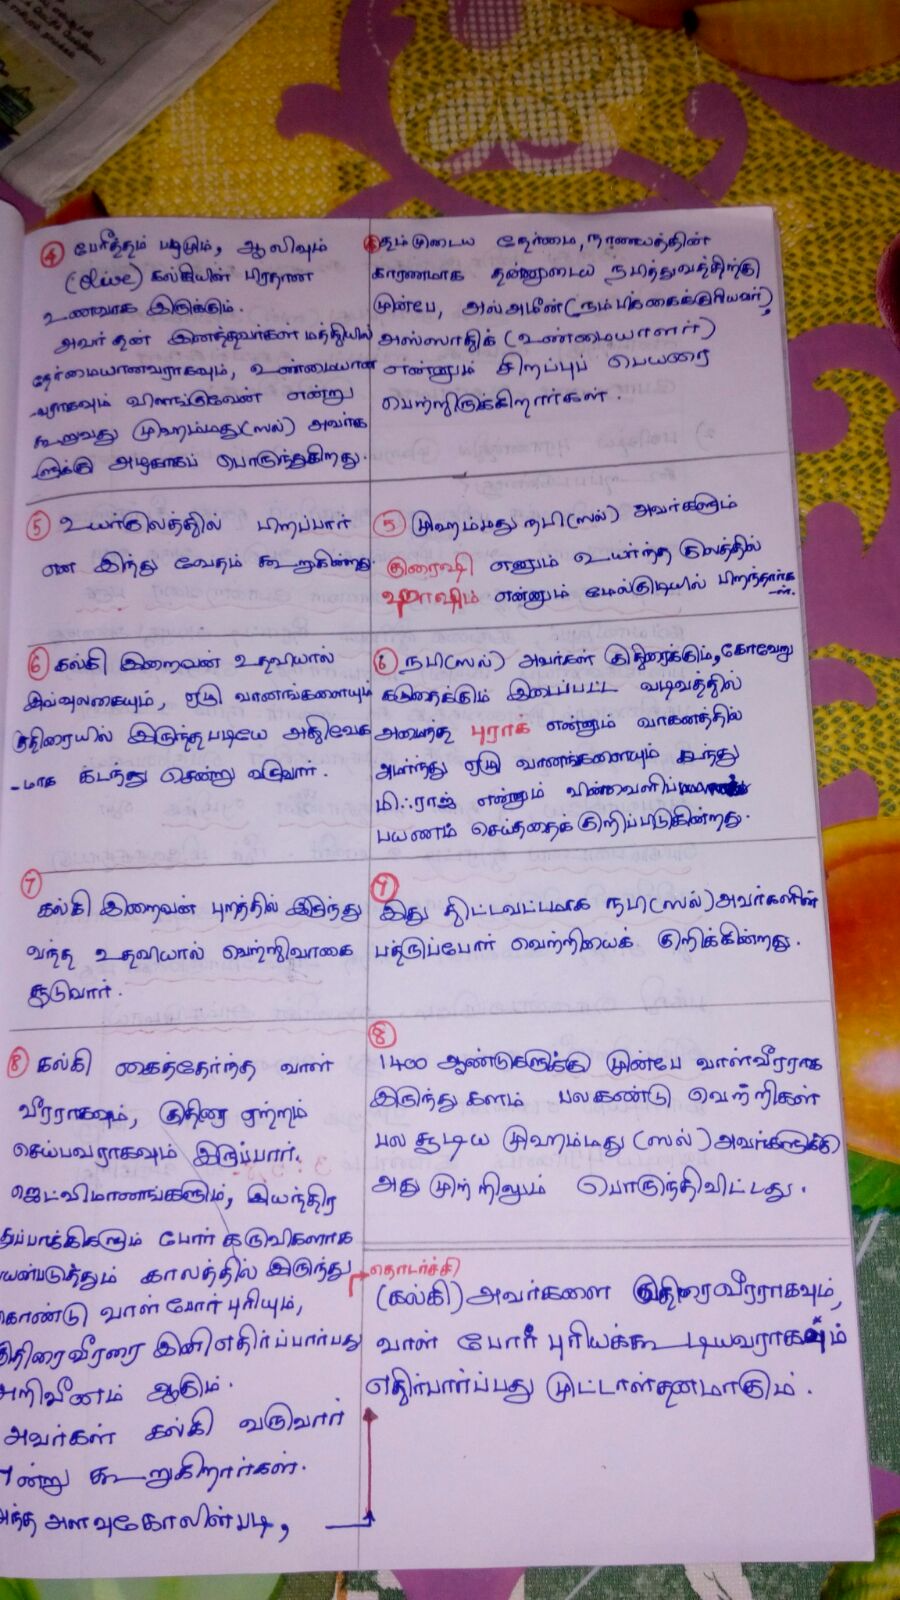 ④ பேரீத்தம் பழமும், ஆலிவும்
(Olive) கல்கியின் பிரதான
உணவாக இருக்கும்.
அவர் தன் இனத்தவர்கள் மத்தியில்
நேர்மையானவராகவும், உண்மையான
-வராகவும் விளங்குவேன் என்று
கூறுவது முஹம்மது(ஸல்) அவர்க
ளுக்கு அழகாகப் பொருந்துகிறது.
தம்முடைய நேர்மை, நாணயத்தின்
காரணமாக தன்னுடைய நபித்துவத்திற்கு
முன்பே, அல்அமீன்(நம்பிக்கைக்குரியவர்),
அஸ்ஸாதிக் (உண்மையாளர்)
என்னும் சிறப்புப் பெயரை
பெற்றிருக்கிறார்கள்.
⑤ உயர்குலத்தில் பிறப்பார்
என இந்து வேதம் கூறுகின்றது.
⑤ முஹம்மது நபி(ஸல்) அவர்களும்
குரைஷி எனும் உயர்ந்த குலத்தில்
ஹாஷிம் என்னும் மேல்குடியில் பிறந்தார்க
-ள்.
⑥ கல்கி இறைவன் உதவியால்
இவ்வுலகையும், ஏழு வானங்களையும்
குதிரையில் இருந்தபடியே அதிவேக
-மாக கடந்து சென்று வருவார்.
⑥ நபி(ஸல்) அவர்கள் குதிரைக்கும், கோவேறு
கழுதைக்கும் இடைப்பட்ட வடிவத்தில்
அமைந்த புராக் என்னும் வாகனத்தில்
அமர்ந்து ஏழு வானங்களையும் கடந்து
மிஃராஜ் என்னும் விண்வெளிப்
பயணம் செய்ததைக் குறிப்படுகின்றது.
⑦
கல்கி இறைவன் புறத்தில் இருந்து
வந்த உதவியால் வெற்றிவாகை
சூடுவார்.
⑦
இது திட்டவட்டமாக நபி(ஸல்) அவர்களின்
பத்ருப்போர் வெற்றியைக் குறிக்கின்றது.
⑧ கல்கி கைத்தேர்ந்த வாள்
வீரராகவும், குதிரை ஏற்றம்
செய்பவராகவும் இருப்பார்.
ஜெட்விமானங்களும், இயந்திர
துப்பாக்கிகளும் போர் கருவிகளாக
பயன்படுத்தும் காலத்தில் இருந்து
கொண்டு வாள் போர் புரியும்,
குதிரைவீரரை இனி எதிர்ப்பார்பது
அறிவீனம் ஆகும்.
அவர்கள் கல்கி வருவார்
என்று கூறுகிறார்கள்.
அந்த அளவுகோலின்படி,
⑧
1400 ஆண்டுகளுக்கு முன்பே வாள்வீரராக
இருந்து களம் பலகண்டு வெற்றிகள்
பல சூடிய முஹம்மது (ஸல்) அவர்களுக்கு
அது முற்றிலும் பொருந்திவிட்டது.
தொடர்ச்சி
(கல்கி) அவர்களை குதிரைவீரராகவும்,
வாள் போர் புரியக்கூடியவராகவும்
எதிர்பார்ப்பது முட்டாள்தனமாகும்.